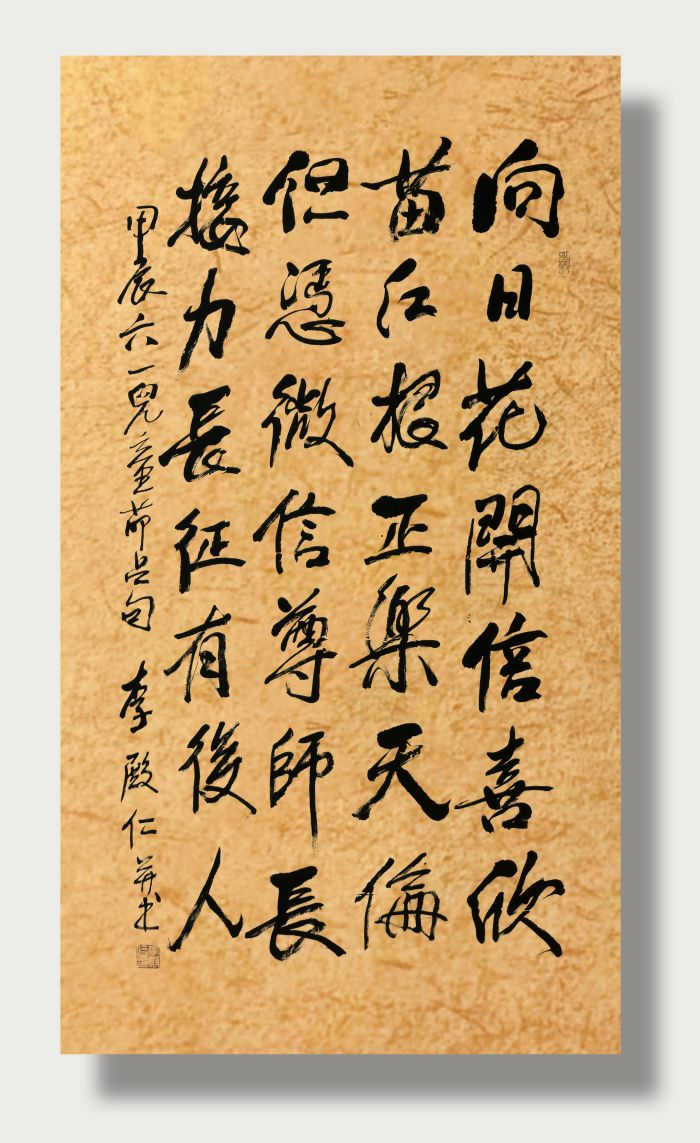 向日花開信喜欣
苗红根正樂天倫
但憑微信尊師長
接力長征有後人
甲辰六一兒童节占句 李殿仁并书